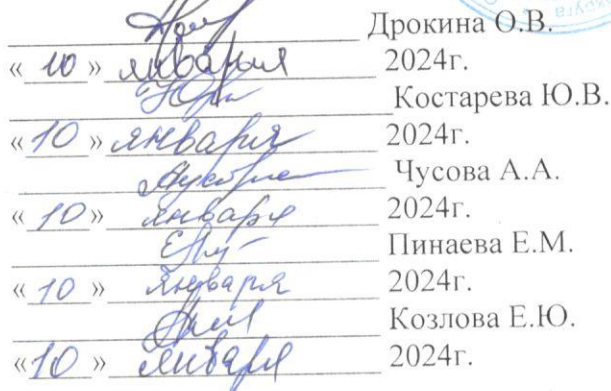 Дрокина О.В.
«10» января 2024г.
Костарева Ю.В.
«10» января 2024г.
Чусова А.А.
«10» января 2024г.
Пинаева Е.М.
«10» января 2024г.
Козлова Е.Ю.
«10» января 2024г.